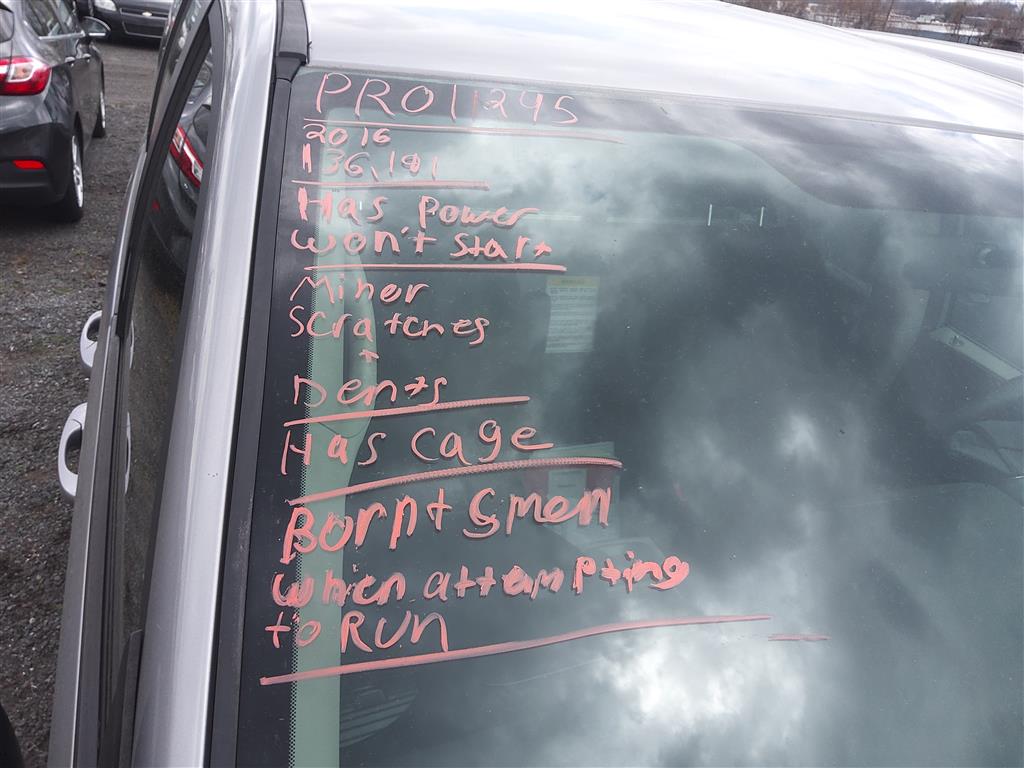 PRO11295
2016
136,191
Has Power
won't start
Miner
Scratches
+
Dents
Has cage
Bornt Smell
when attampting
to RUN